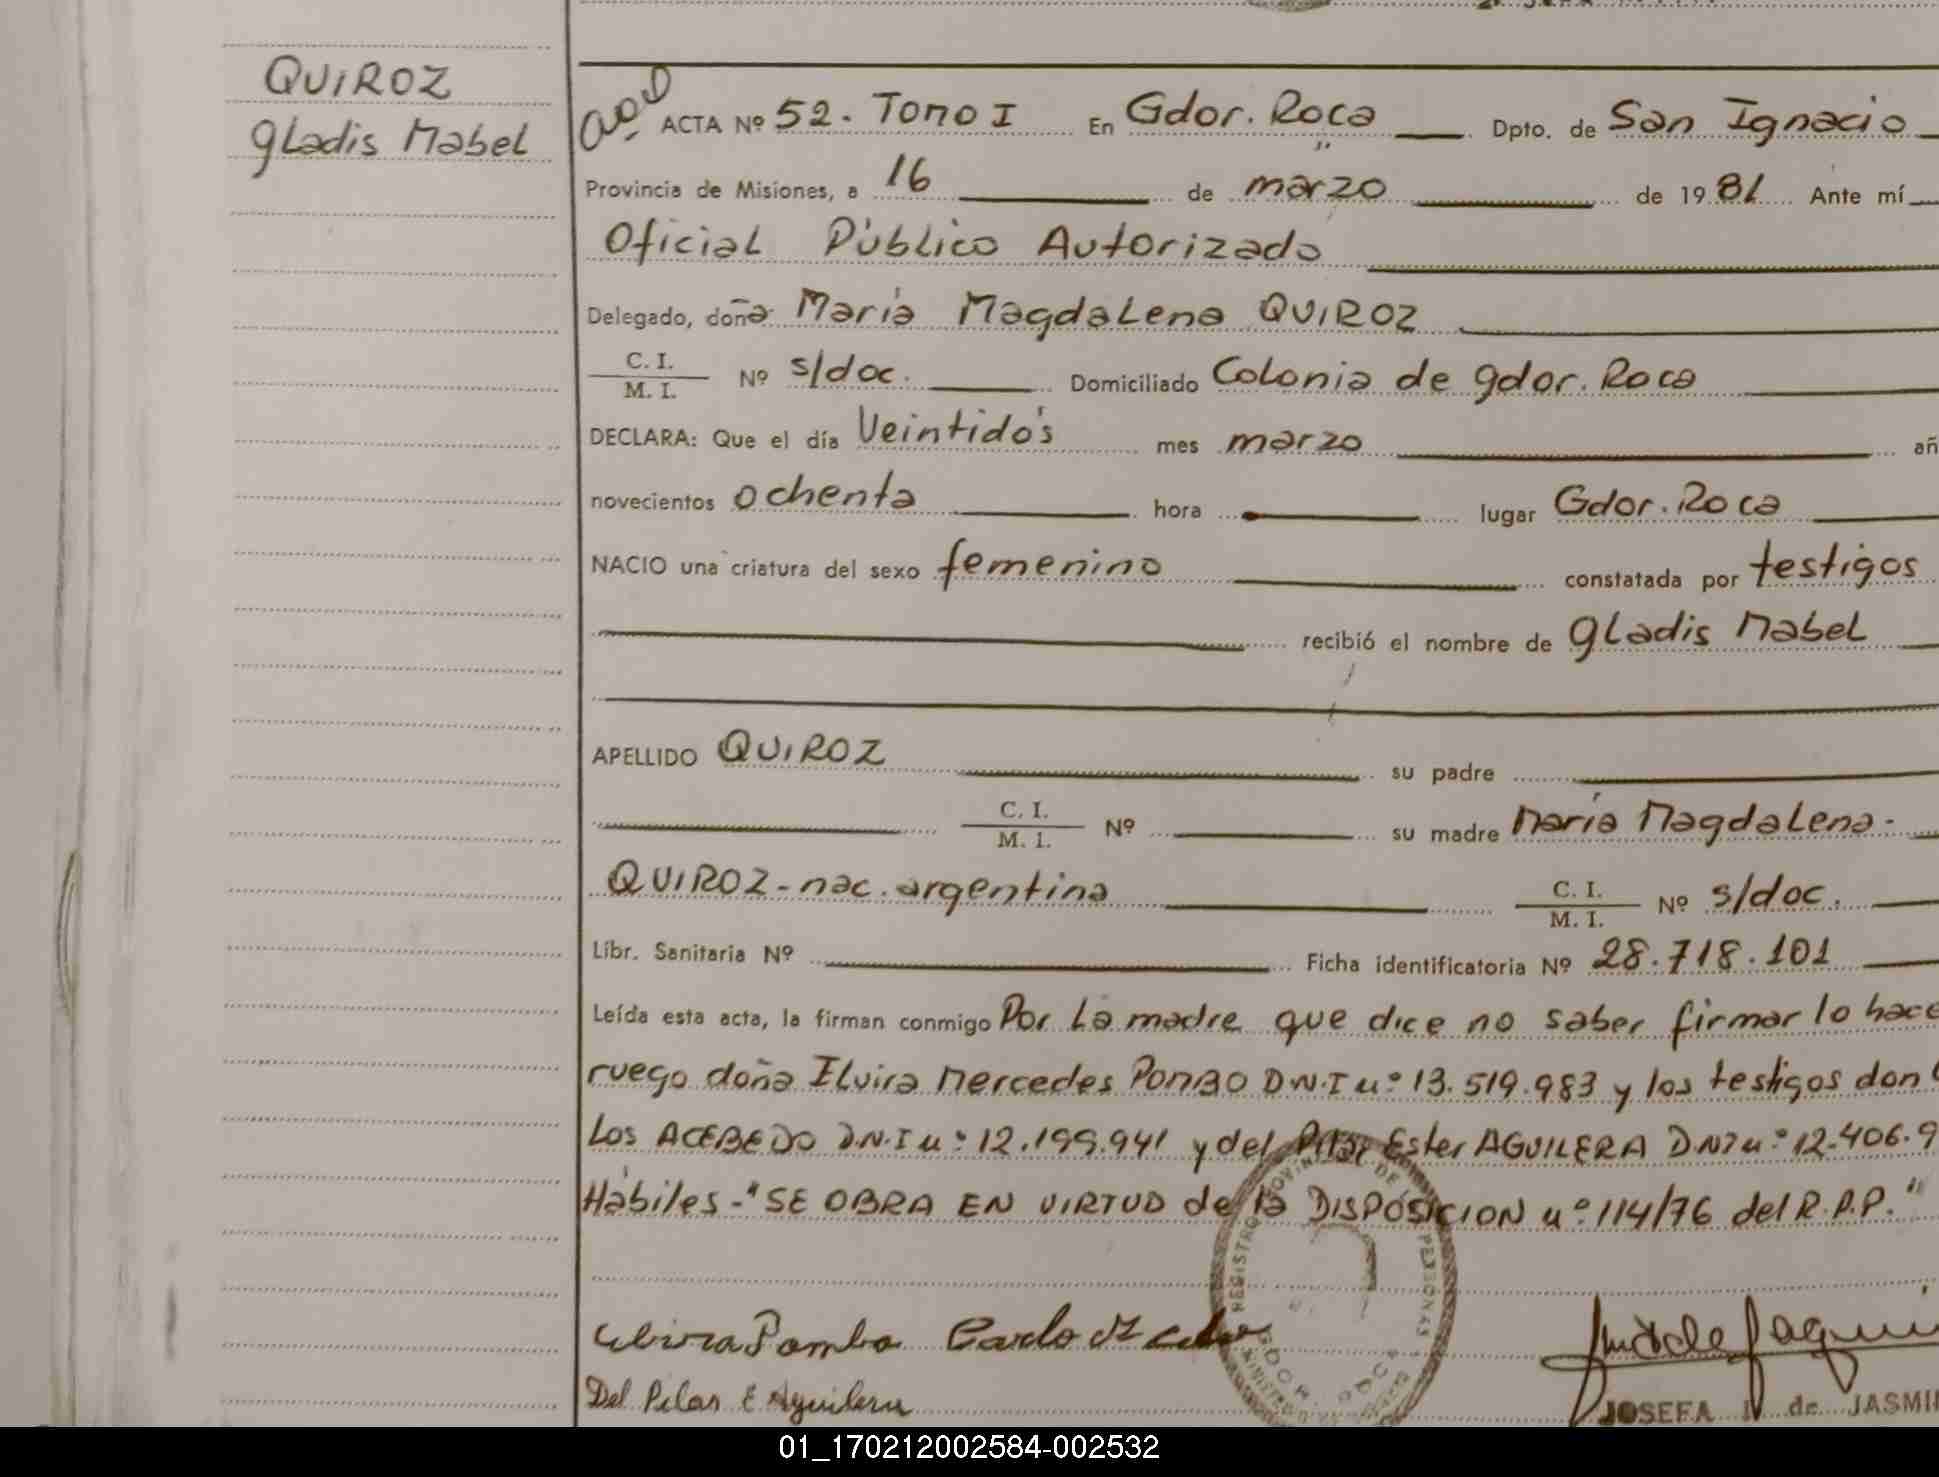 QUIROZ
Gladis Mabel
ACTA Nº 52. Tomo I En Gdor. Roca Dpto. de San Ignacio
Provincia de Misiones, a 16 de marzo de 1981 Ante mí
Oficial Público Autorizado
Delegado, doña María Magdalena QUIROZ
C. I.
M. I. Nº s/doc. Domiciliado Colonia de gdor. Roca
DECLARA: Que el día Veintidós mes marzo añ
novecientos ochenta hora lugar Gdor. Roca
NACIO una criatura del sexo femenino constatada por testigos
recibió el nombre de Gladis Mabel
APELLIDO QUIROZ su padre
C. I.
M. I. Nº su madre María Magdalena-
QUIROZ-nac. argentina C. I.
M. I. Nº s/doc.
Libr. Sanitaria Nº Ficha identificatoria Nº 28.718.101
Leída esta acta, la firman conmigo Por La madre que dice no saber firmar lo hace
ruego doña Elvira Mercedes POMBO D.N.I nº 13.519.983 y los testigos don
Los ACEBEDO D.N.I nº 12.199.941 y del Pilar Ester AGUILERA DNI nº 12.406.9
Hábiles-"SE OBRA EN VIRTUD de la DISPOSICION nº 114/76 del R.P.P."
REGISTRO PROVINCIAL DE PERSONAS
GDOR. ROCA
Elvira Pombo
Del Pilar E Aguilera
JOSEFA de JASMI
01_170212002584-002532